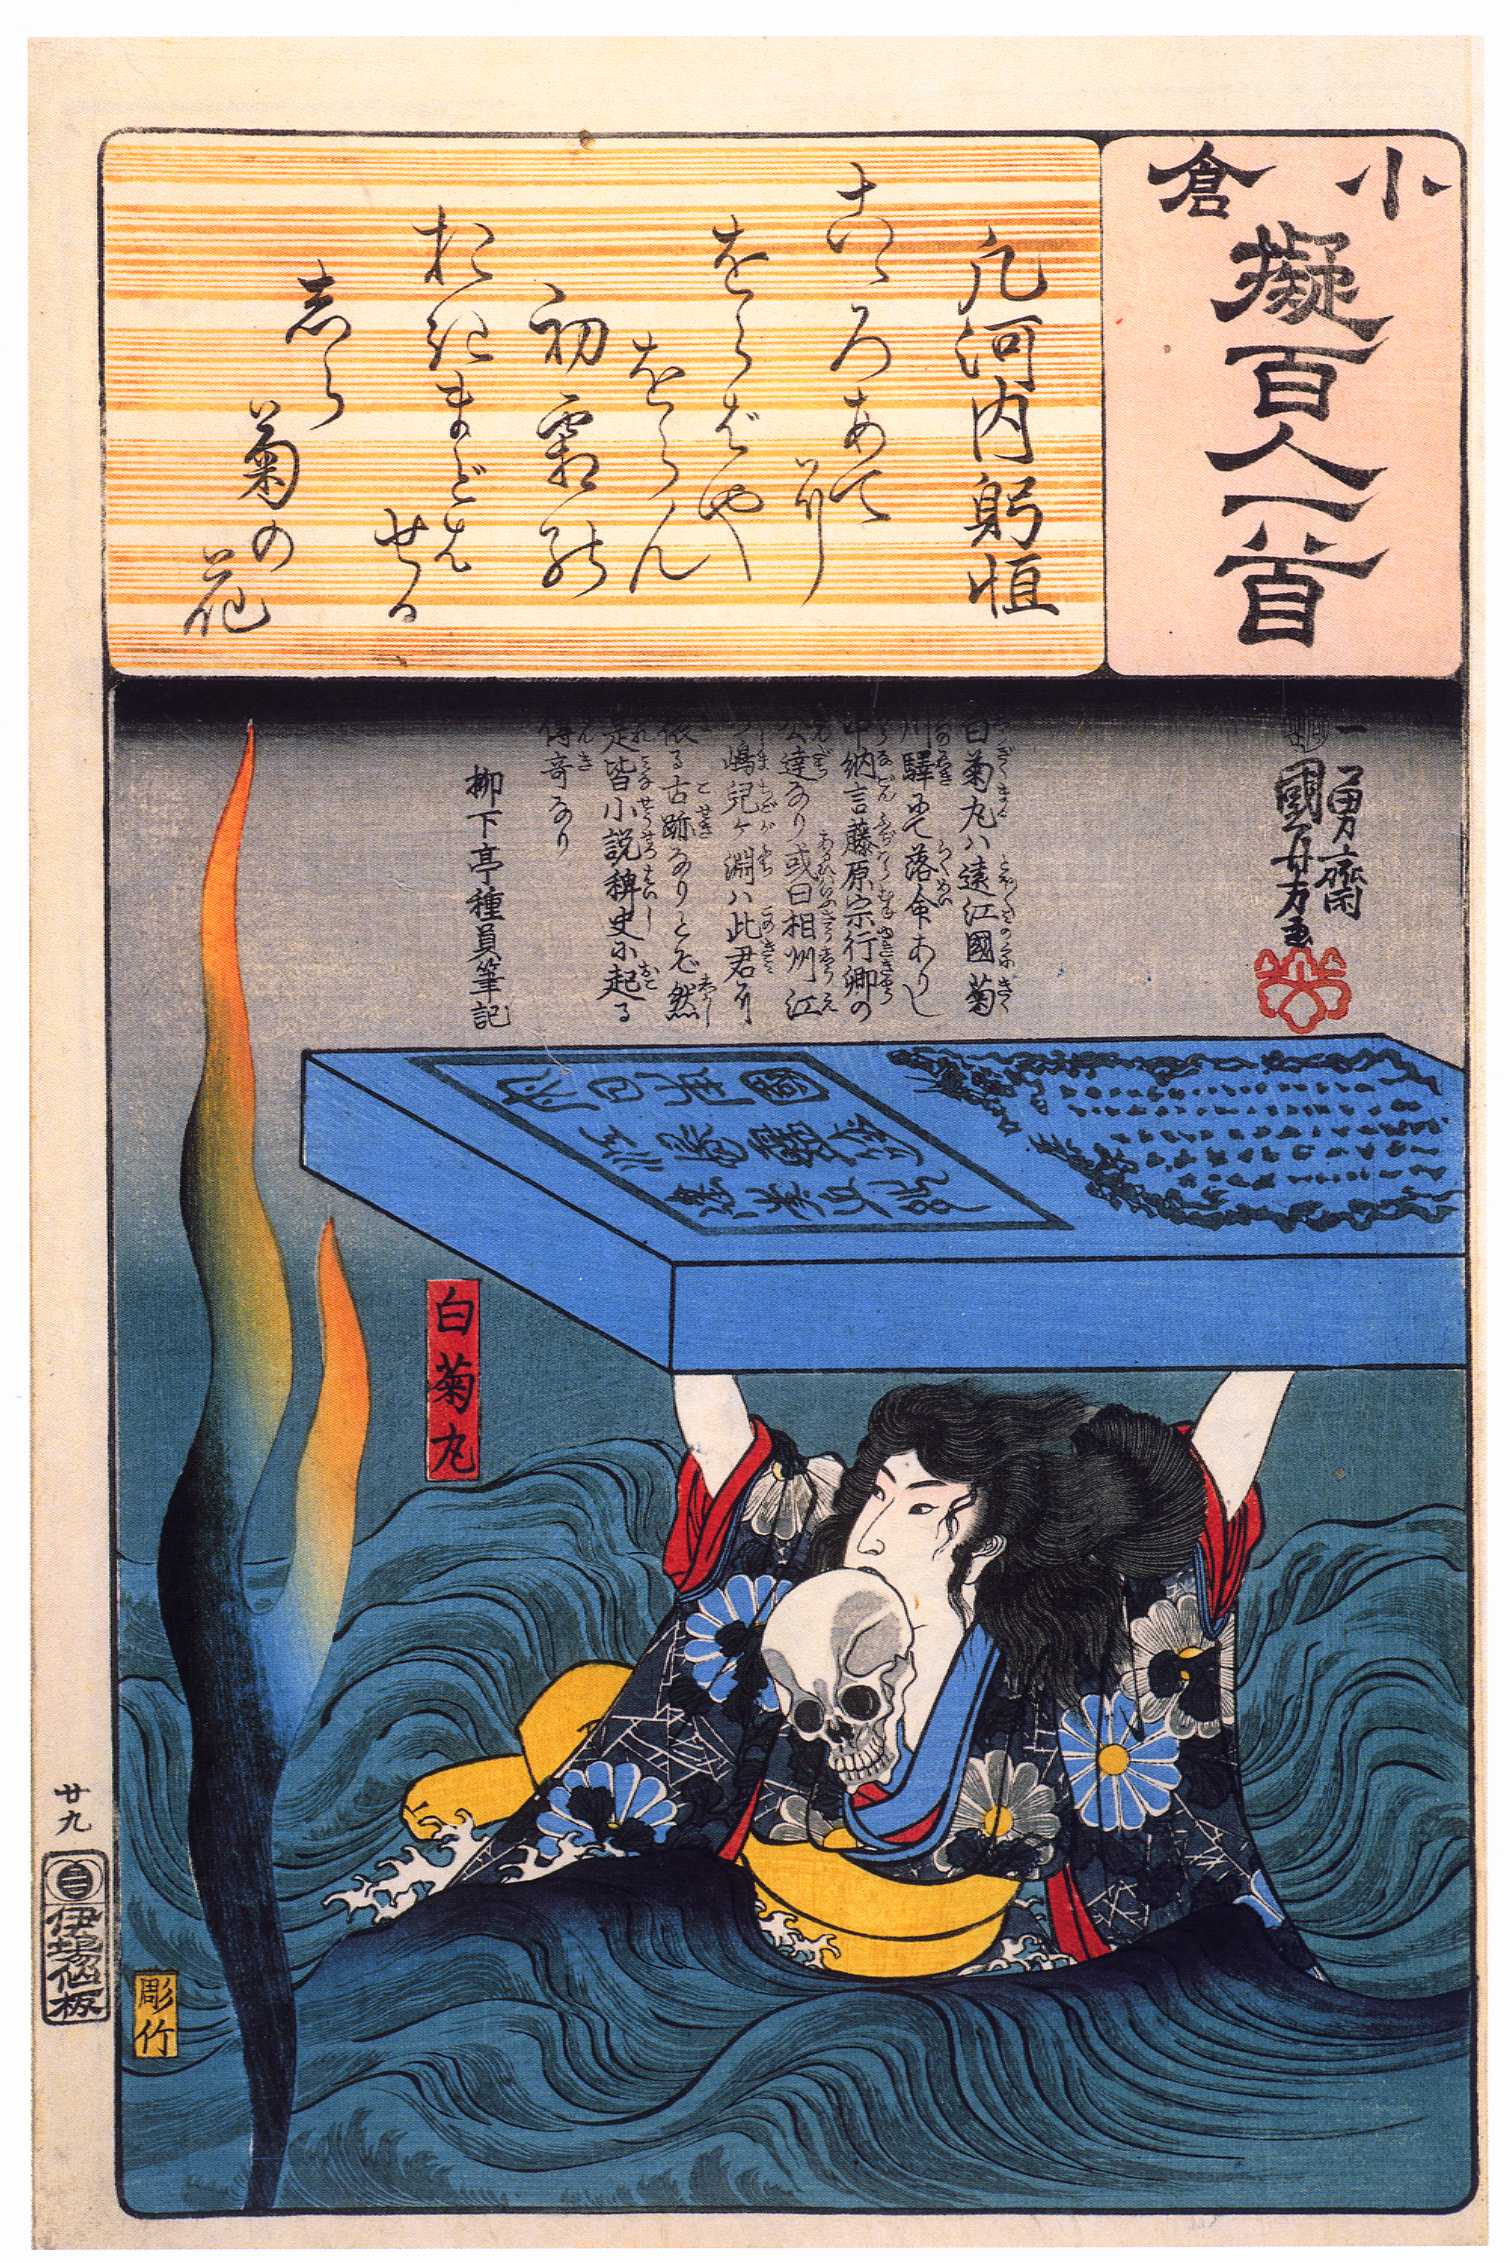 小倉
擬百人一首
凡河内躬恒
こゝろあてに
をらばや
をらん
初霜の
おきまどはせる
しら
菊の
花
一勇齋
國芳画
白菊丸ハ遠江國菊
川驛にて落命ありし
中納言藤原宗行卿の
公達なり或曰相州江
の嶋兒ヶ淵ハ此君に
依る古跡なりとぞ然
是皆小説稗史に起る
傳奇なり
柳下亭種員筆記
白菊丸
廿九
伊場仙板
彫竹